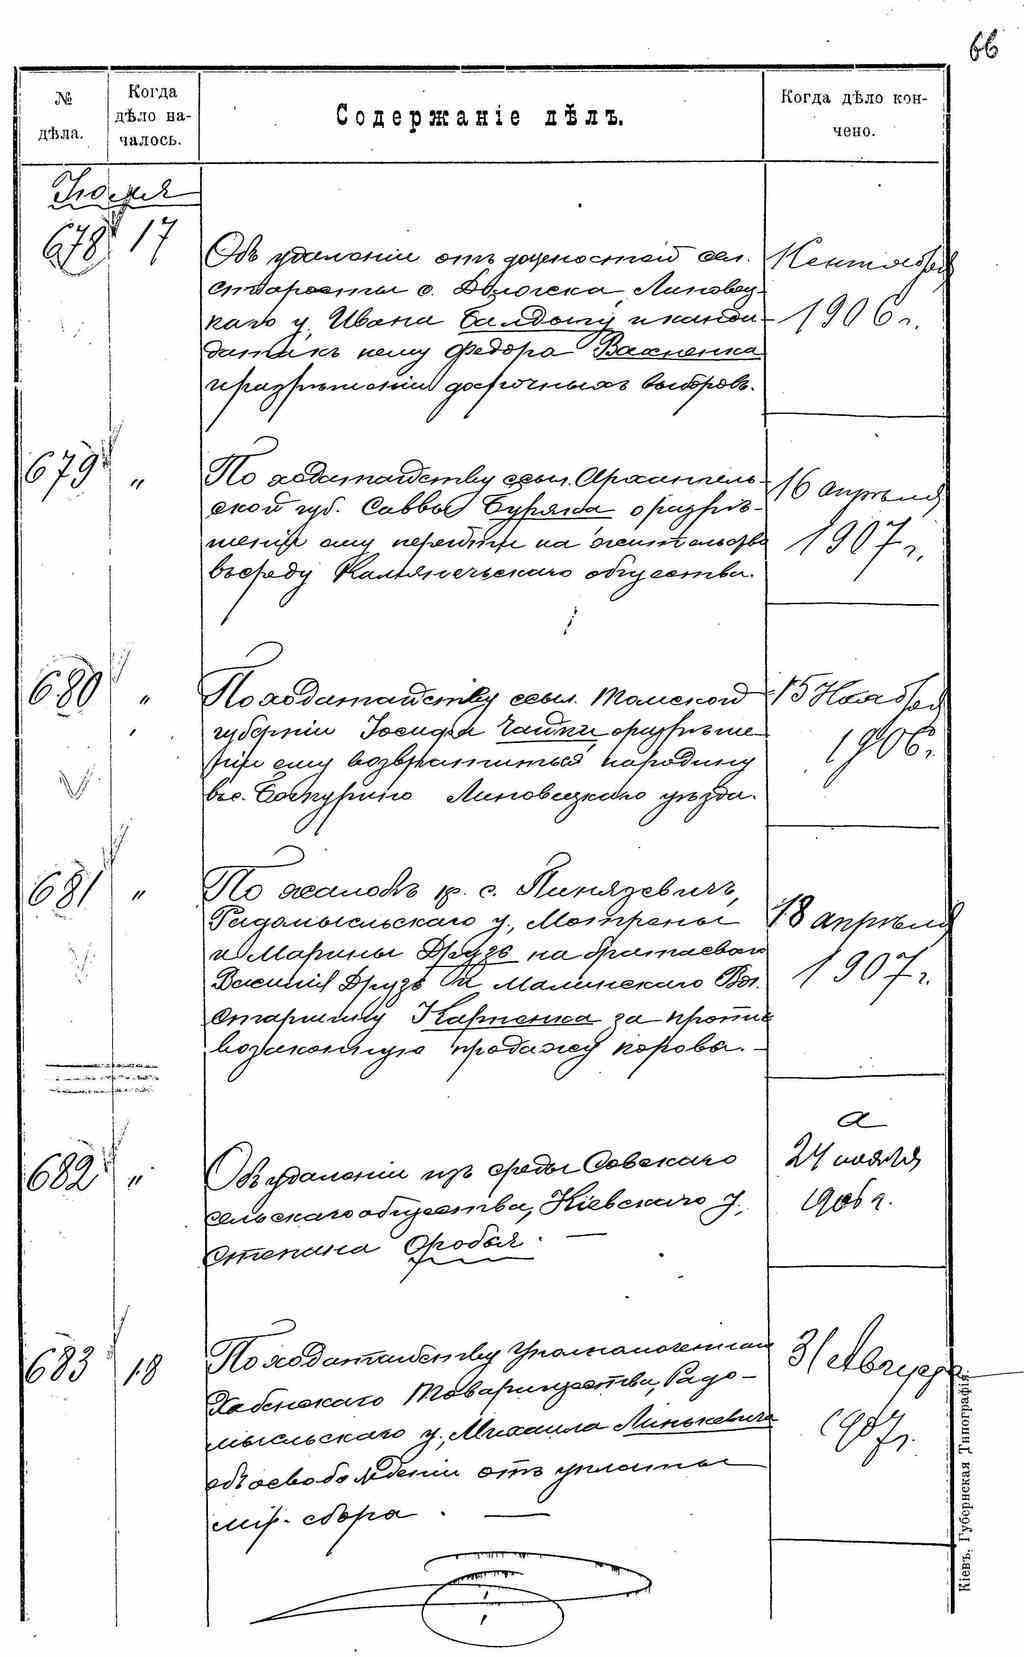 66
№ дѣла.
Когда дѣло на-
чалось.
Содержаніе дѣлъ.
Когда дѣло кон-
чено.
Іюля
678 17
Объ удаленіи отъ должностей сел.
старосты с. Долочска, Липовец-
каго у. Ивана Балдогу и канди-
дата къ нему Федора Вахненка
и разрѣшеніи досрочныхъ выборовъ.
1 Сентября
1906 г.
679 "
По ходатайству ссыл. Архангель-
ской губ. Саввы Буряка о разрѣ-
шеніи ему перейти на жительство
въ среду общества.
16 апрѣля
1907 г.
680 "
По ходатайству ссыл. Томской
губерніи Іосифа Чайки о разрѣше-
ніи ему возвратиться на родину
въ с. Босурино Липовецкаго уѣзда.
15 Ноября
1906 г.
681 "
По жалобѣ кр. с. Пинязевичъ,
Радомысльскаго у., Мотрены
и Марины Друзь на братаеваго
Василія Друзь и Малинскаго Вол.
Старшину Карпенка за проти-
возаконную продажу коровы. —
18 апрѣля
1907 г.
682 "
Объ удаленіи изъ среды Совскаго
сельскаго общества, Кіевскаго у.,
Степана Оробья. —
24 ноября
1906 г.
683 18
По ходатайству Уполномоченнаго
Хабенскаго Товарищества, Радо-
мысльскаго у., Михаила Линькевича
объ освобожденіи отъ уплаты
мір. сбора. —
31 Августа
1907 г.
Кіевъ. Губернская Типографія.